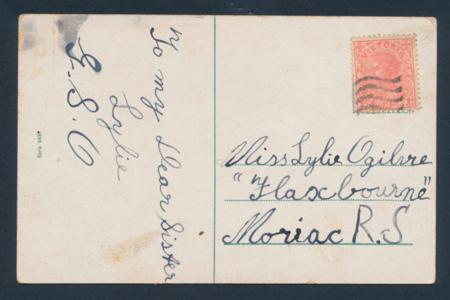 To my Dear Sister
Lylie
G.S.O
VICTORIA
Miss Lylie Ogilvie
"Flaxbourne"
Moriac R.S